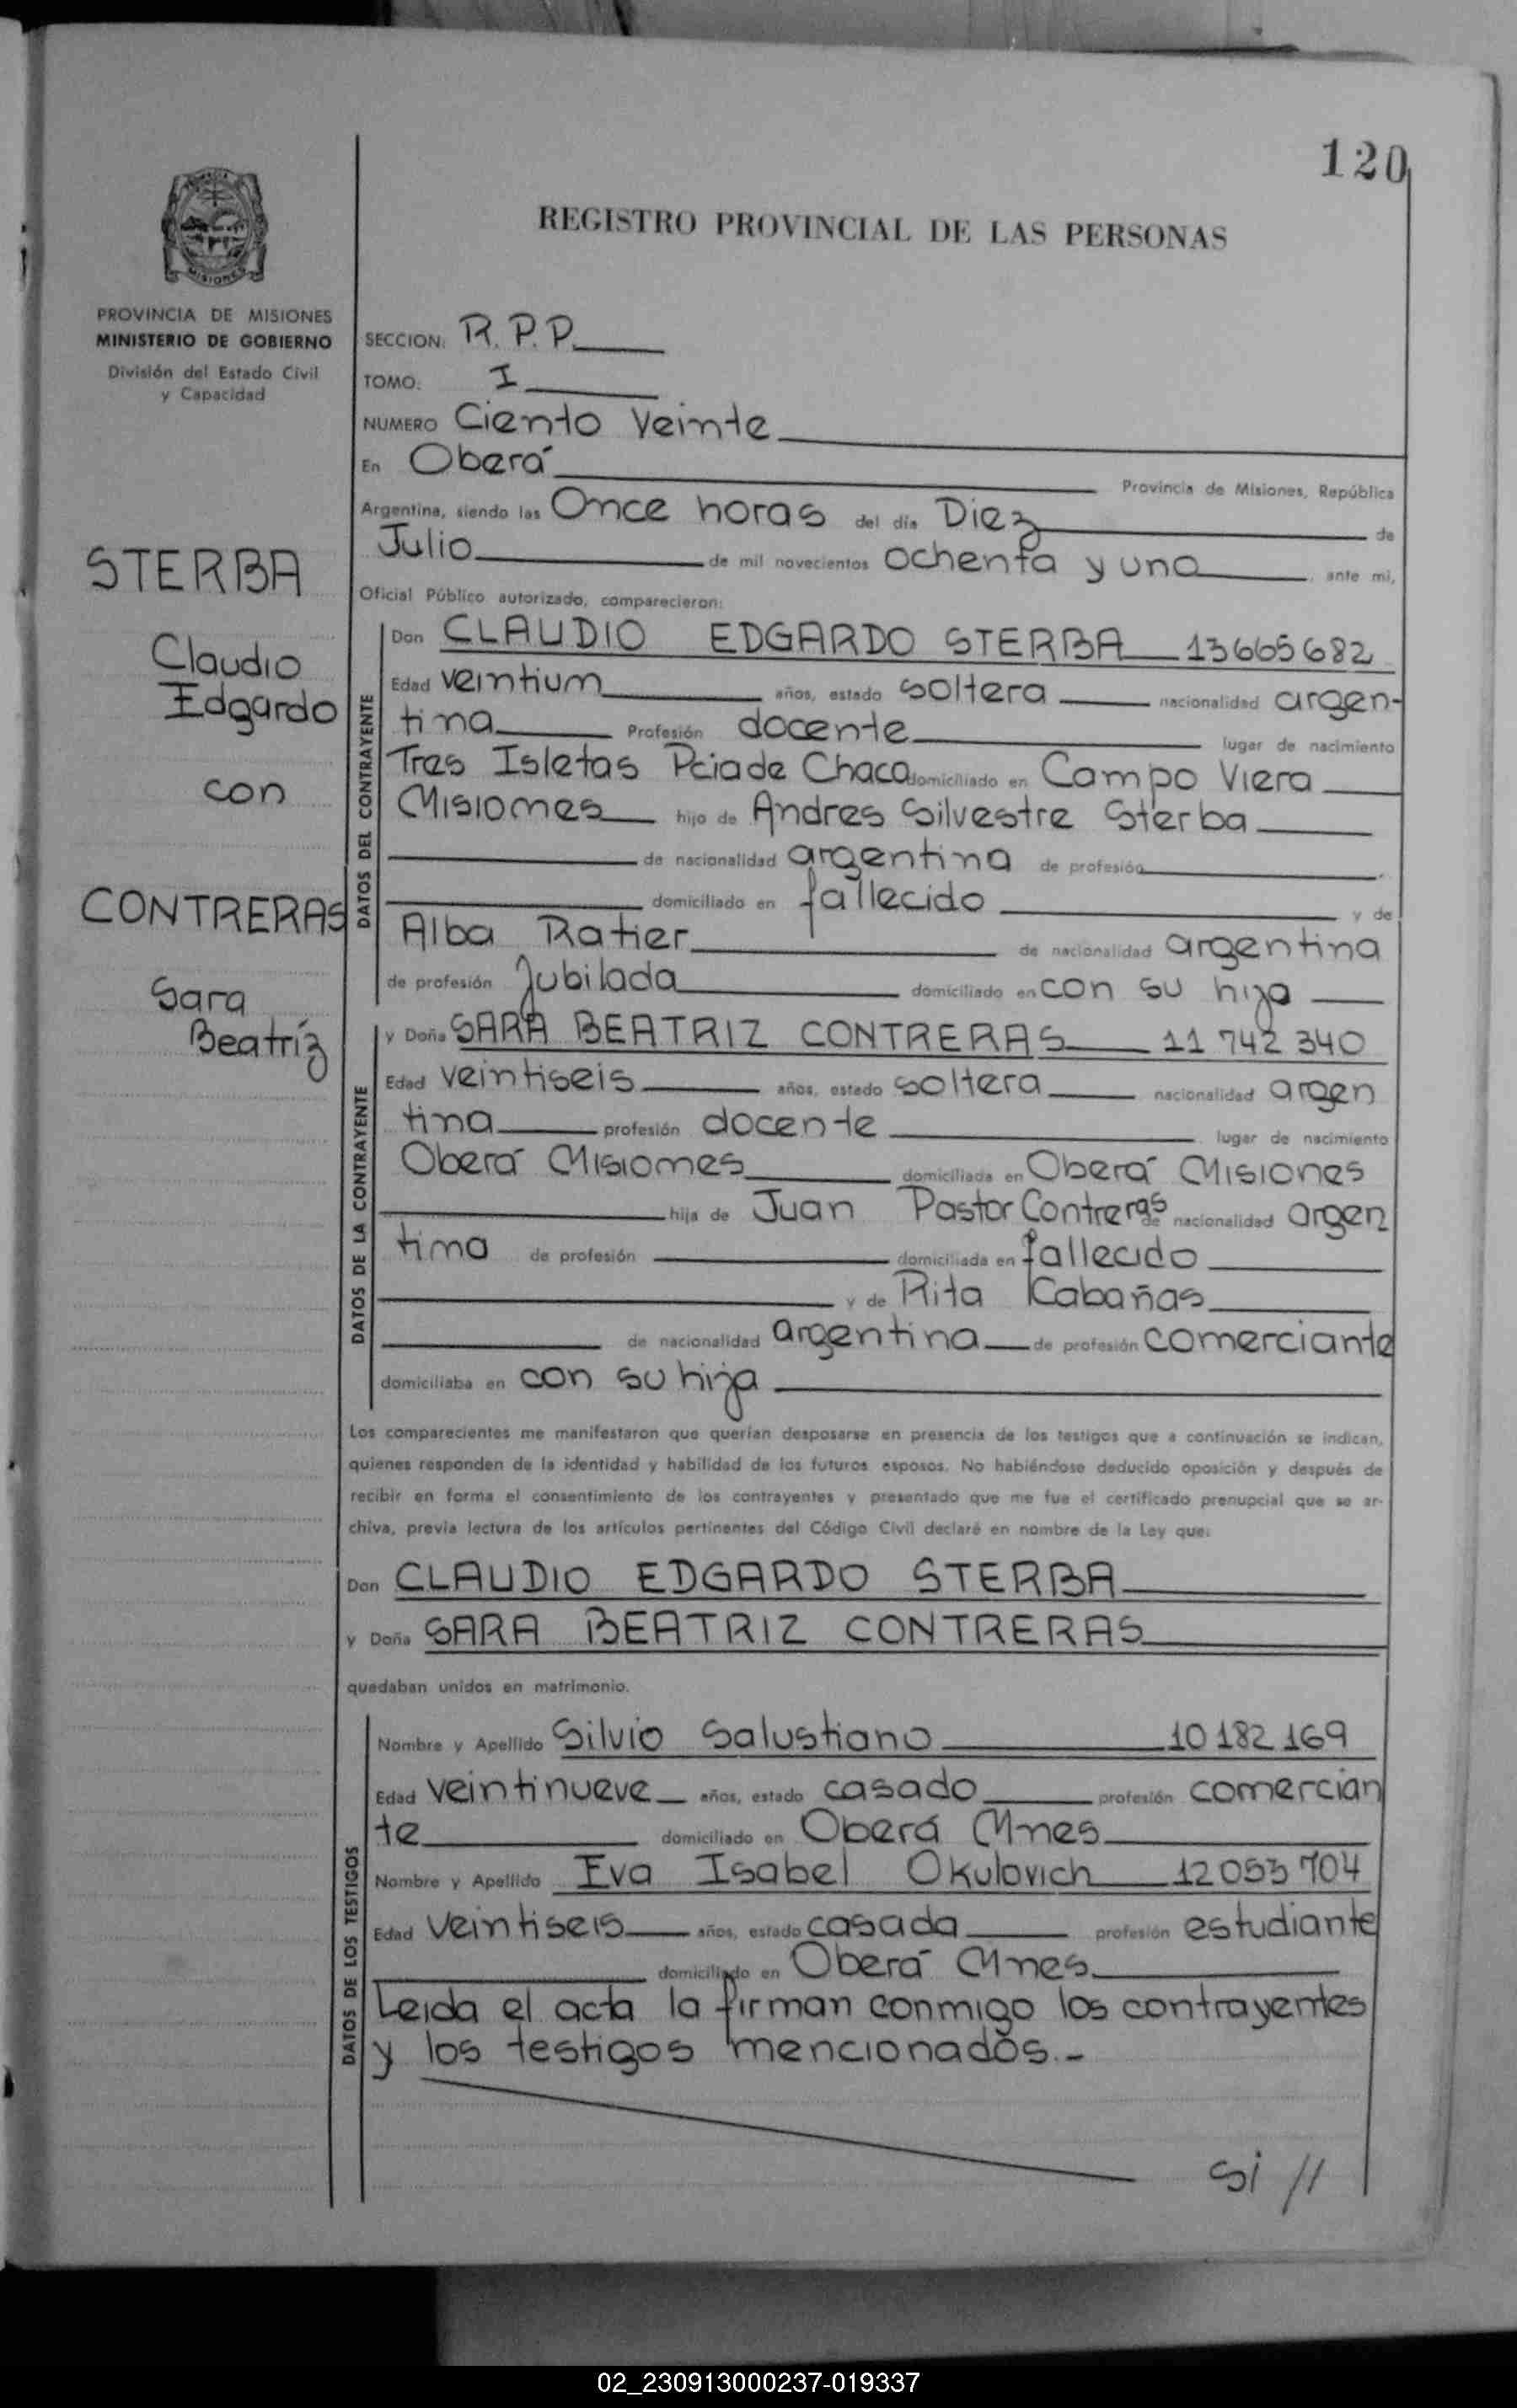 120
REGISTRO PROVINCIAL DE LAS PERSONAS
MISIONES
PROVINCIA DE MISIONES
MINISTERIO DE GOBIERNO
División del Estado Civil
y Capacidad
STERBA
Claudio
Edgardo
con
CONTRERAS
Sara
Beatríz
SECCION: R. P. P.
TOMO: I
NUMERO Ciento Veinte
En Oberá Provincia de Misiones, República
Argentina, siendo las Once horas del día Diez de
Julio de mil novecientos ochenta y uno, ante mi,
Oficial Público autorizado, comparecieron:
DATOS DEL CONTRAYENTE
Don CLAUDIO EDGARDO STERBA 13665682
Edad veintium años, estado soltera nacionalidad argen-
tina Profesión docente lugar de nacimiento
Tres Isletas Pcia de Chaco domiciliado en Campo Viera
Misiones hijo de Andres Silvestre Sterba
de nacionalidad argentina de profesión
domiciliado en fallecido y de
Alba Ratier de nacionalidad argentina
de profesión Jubilada domiciliado en con su hijo
DATOS DE LA CONTRAYENTE
y Doña SARA BEATRIZ CONTRERAS 11 742 340
Edad veintiseis años, estado soltera nacionalidad argen
tina profesión docente lugar de nacimiento
Oberá Misiones domiciliada en Oberá Misiones
hija de Juan Pastor Contreras de nacionalidad argen
tina de profesión domiciliada en fallecido
y de Rita Cabañas
de nacionalidad argentina de profesión comerciante
domiciliaba en con su hija
Los comparecientes me manifestaron que querían desposarse en presencia de los testigos que a continuación se indican,
quienes responden de la identidad y habilidad de los futuros esposos. No habiéndose deducido oposición y después de
recibir en forma el consentimiento de los contrayentes y presentado que me fue el certificado prenupcial que se ar-
chiva, previa lectura de los artículos pertinentes del Código Civil declaré en nombre de la Ley que:
Don CLAUDIO EDGARDO STERBA
y Doña SARA BEATRIZ CONTRERAS
quedaban unidos en matrimonio.
DATOS DE LOS TESTIGOS
Nombre y Apellido Silvio Salustiano 10 182 169
Edad veintinueve años, estado casado profesión comercian
te domiciliado en Oberá Mnes
Nombre y Apellido Eva Isabel Okulovich 12 053 704
Edad veintiseis años, estado casada profesión estudiante
domiciliado en Oberá Mnes
Leida el acta la firman conmigo los contrayentes
y los testigos mencionados.-
si //
02_230913000237-019337